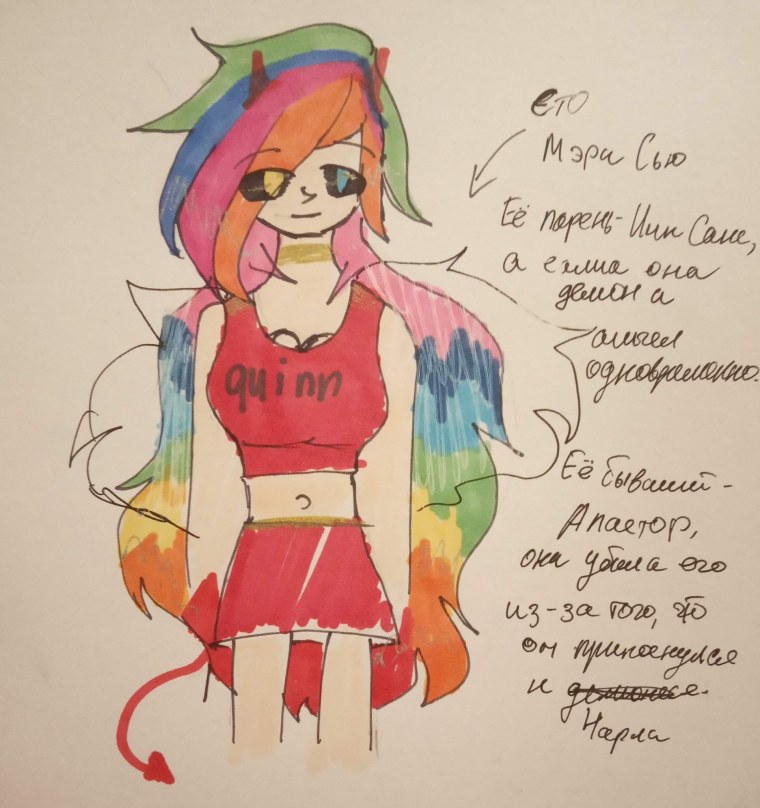 quinn
ето
Мэри Сью
Её парень - Инк Санс,
а она
демон и
ангел
одновременно.
Её бывший -
Аластор,
она убила его
из-за того, что
он прикоснулся
к
Чарли